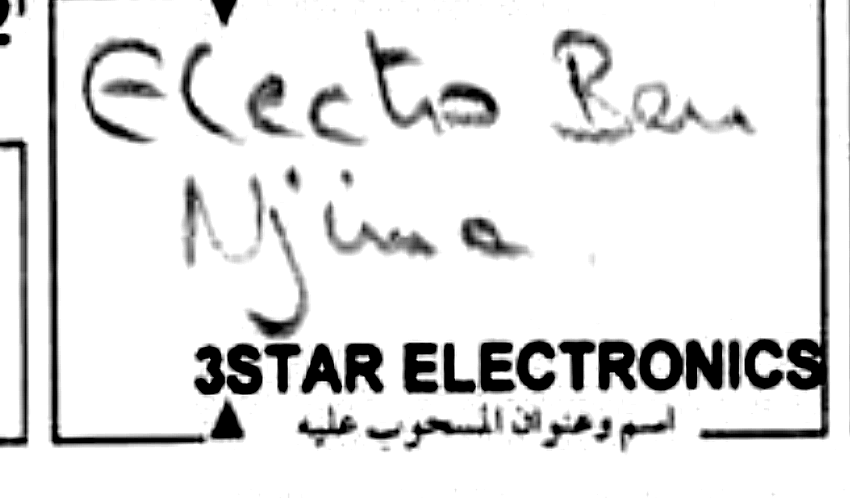 Electro Ben
Njima
3STAR ELECTRONICS
اسم وعنوان المسحوب عليه